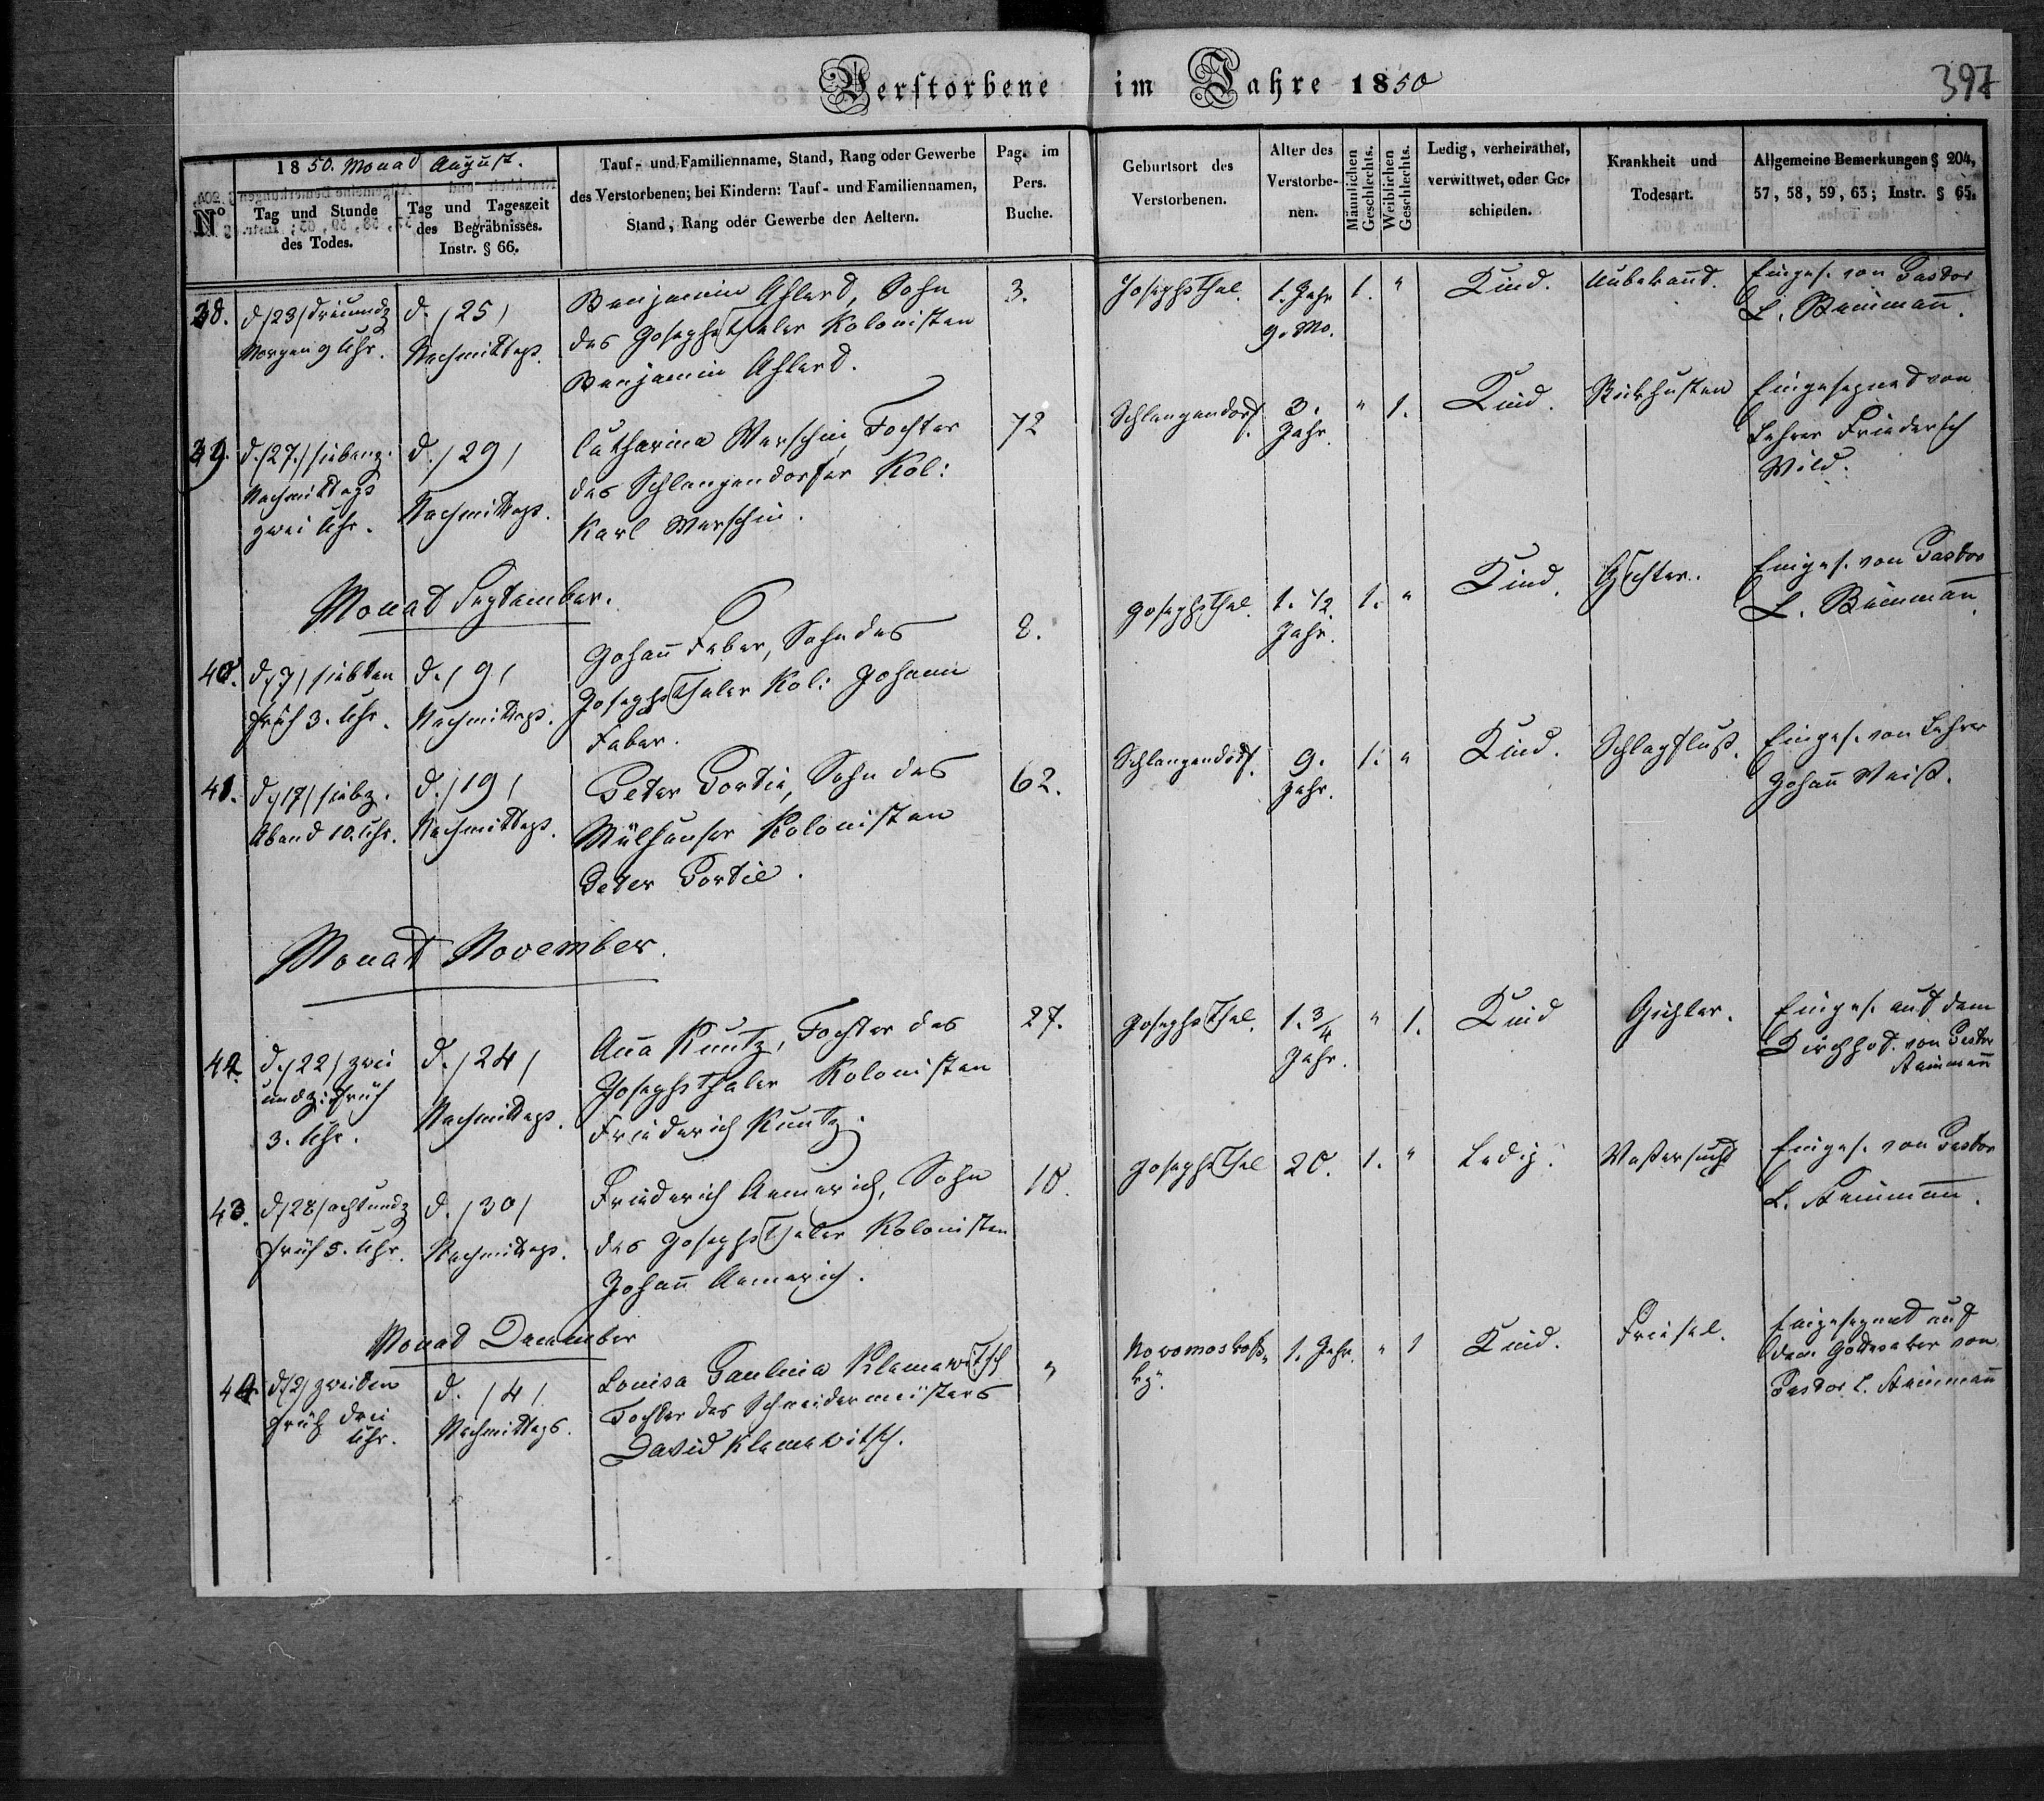 Verstorbene im Jahre 1850
397
1850. Monad August.
Nº
Tag und Stunde
des Todes.
Tag und Tageszeit
des Begräbnisses.
Instr. § 66.
Tauf- und Familienname, Stand, Rang oder Gewerbe
des Verstorbenen; bei Kindern: Tauf- und Familiennamen,
Stand, Rang oder Gewerbe der Aeltern.
Pag. im
Pers.
Buche.
Geburtsort des
Verstorbenen.
Alter des
Verstorbe-
nen.
Männlichen
Geschlechts.
Weiblichen
Geschlechts.
Ledig, verheirathet,
verwittwet, oder Ge-
schieden.
Krankheit und
Todesart.
Allgemeine Bemerkungen § 204,
57, 58, 59, 63; Instr. § 65.
38.
d /23/ dreiundz
Morgen 9 Uhr.
d. /25/
Nachmittags.
Benjamin Ahlerd, Sohn
des Josephsthaler Kolonisten
Benjamin Ahlerd.
3.
Josephsthal.
1. Jahr
9. Mo.
1.
"
Kind.
Unbekannd.
Einges. von Pastor
L.
39.
d. /27./ siebenz.
Nachmittags
zwei Uhr.
d. /29/
Nachmittags.
Catharina Werschin, Tochter
des Schlangendorfer Kol:
Karl Werschin.
72
Schlangendorf.
3.
Jahr.
"
1.
Kind.
Stickhusten
Eingesegned von
Lehrer Friedersch
Wild.
Monad September.
40.
d /7/ siebten
früh 3. Uhr.
d. /9/
Nachmittags.
Johann Faber, Sohn des
Josephsthaler Kol: Johann
Faber.
8.
Josephsthal.
1. 1/2
Jahr.
1.
"
Kind.
Gichter.
Einges. von Pastor
L.
41.
d /17/ siebz.
Abend 10. Uhr.
d. /19/
Nachmittags.
Peter Portie, Sohn des
Mülhauser Kolonisten
Peter Portie.
62.
Schlangendorf.
9.
Jahr.
1.
"
Kind.
Schlagfluß.
Einges. von Lehrer
Johann Weiß.
Monad November.
42.
d. /22/ zwei
undz: früh
3. Uhr.
d. /24/
Nachmittags.
Anna Kuntz, Tochter des
Josephsthaler Kolonisten
Friederich Kuntz.
27.
Josephsthal.
1. 3/4
Jahr.
"
1.
Kind
Gichter.
Einges. auf dem
Kirchhof. von Pastor
43.
d /28/ achtundz
früh 5. Uhr.
d. /30/
Nachmittags.
Friederich Aemerich, Sohn
des Josephsthaler Kolonisten
Johann Aemerich.
10.
Josephsthal
20.
1.
"
Ledig.
Waßersucht
Einges. von Pastor
L.
Monad December
44.
d /2/ zweiten
früh drei
Uhr.
d. /4/
Nachmittags.
Louisa Paulina Klemewitsch
Tochter des Schneidermeisters
David Klemewitsch.
"
Novomoskoß„
kÿ.
1. Jahr.
"
1
Kind.
Friesel.
Eingesegnet auf
dem Gottesaker von
Pastor L.